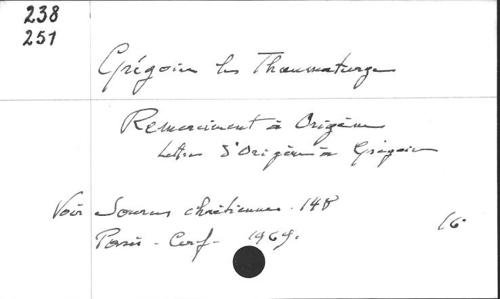 238
251
Grégoire le Thaumaturge
Remerciement à Origène
Lettre d'Origène à Grégoire
Voir Sources chrétiennes. 148
Paris - Cerf - 1969.
16.